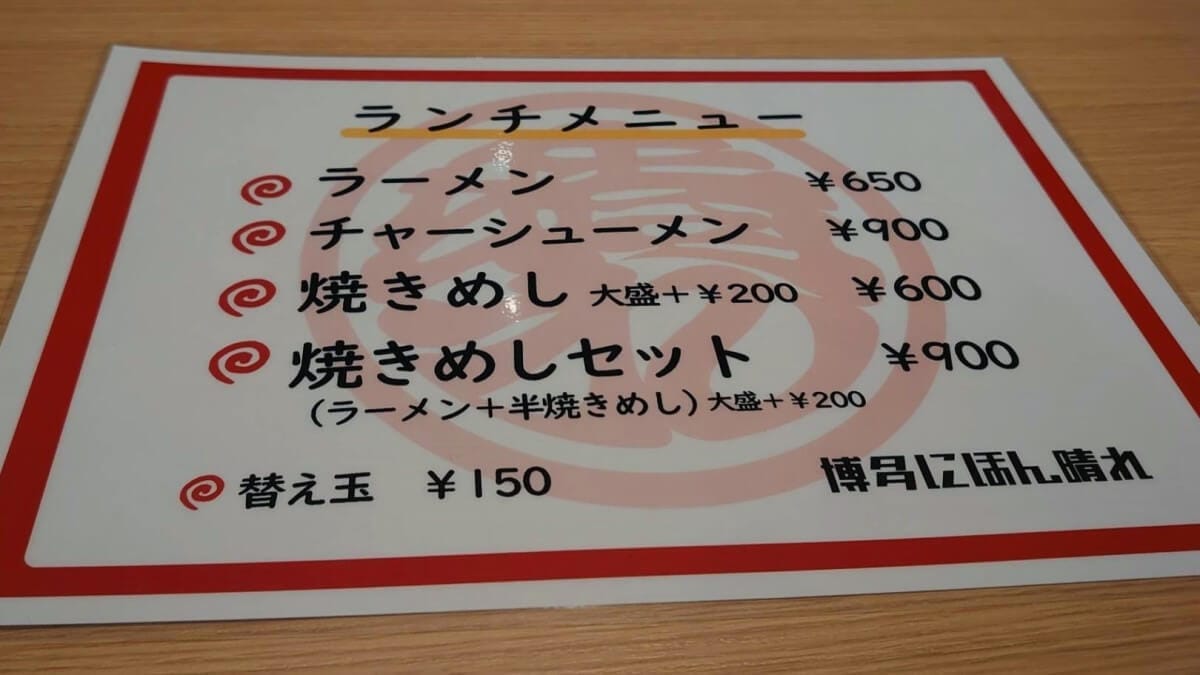 ランチメニュー
ラーメン ¥650
チャーシューメン ¥900
焼きめし 大盛+¥200 ¥600
焼きめしセット ¥900
(ラーメン+半焼きめし) 大盛+¥200
替え玉 ¥150
博多にほん晴れ